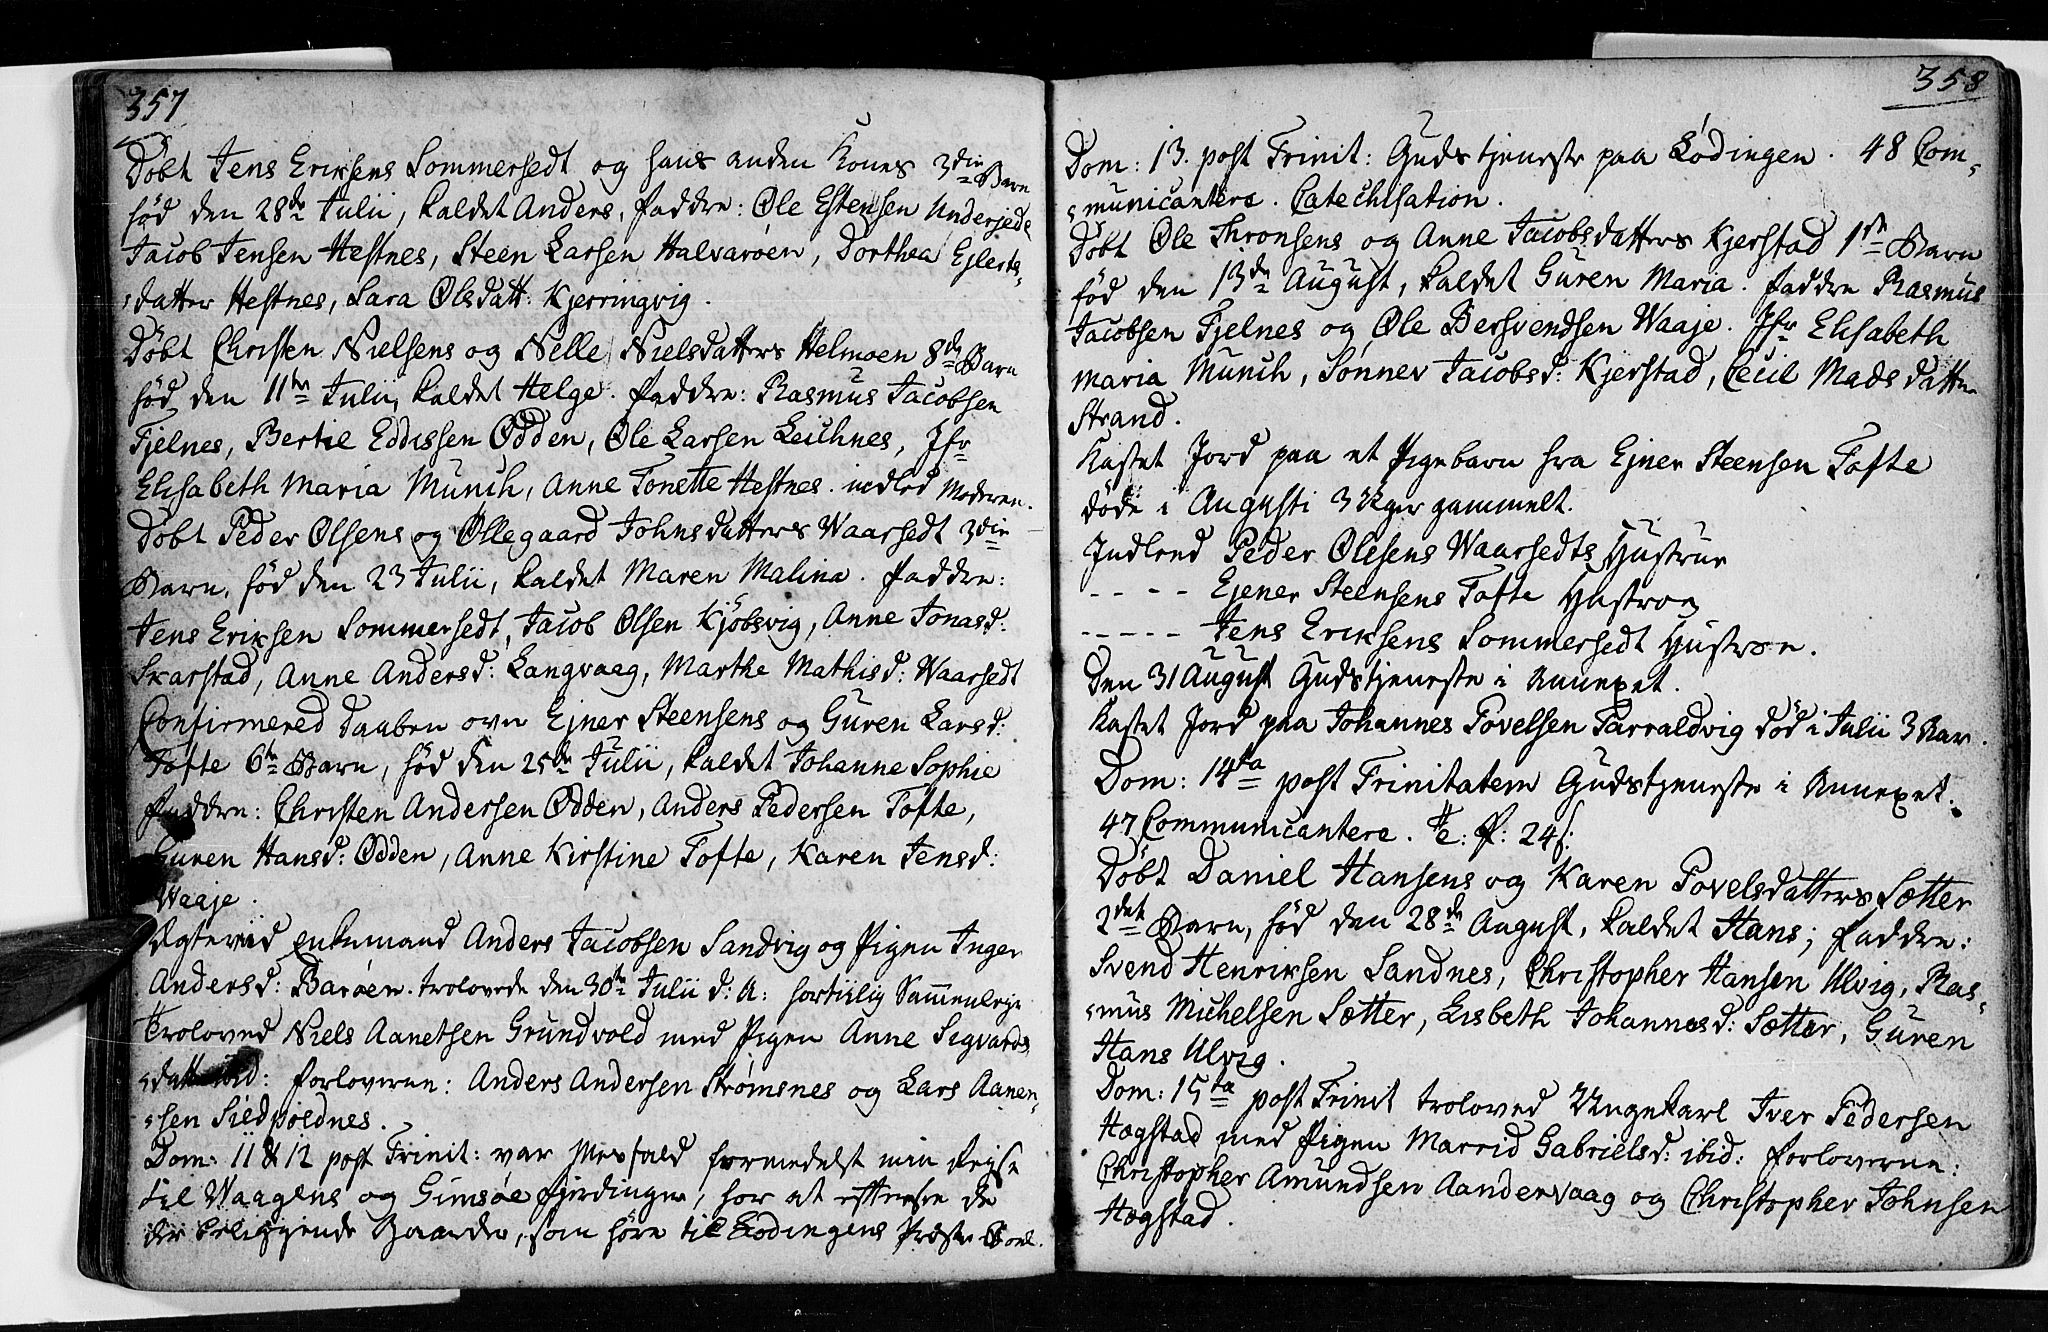 357
Døbt Jens Eriksens Sommersedt og hans anden Kones 3die Barn
fød den 28de Julii, kaldet Anders, Faddre: Ole Estensen Undersjede
Jacob Jensen Hestnes, Steen Larsen Halvarøen, Dorthea Ejlerts-
datter Hestnes, Sara Olsdatt: Kjerringvig.
Døbt Christen Nielsens og Nelle Nielsdatters Helmoen 8de Barn
fød den 11te Julii, kaldet Helge. Faddre: Rasmus Jacobsen
Fjelnes, Bertil Eddissen Odden, Ole Larsen Leichnes, Jfr
Elisabeth Maria Munch, Anne Tonette Hestnes. indled Moderen.
Døbt Peder Olsens og Ollegaard Johnsdatters Waarsedt 3die
Barn, fød den 23 Julii, kaldet Maren Malina. Faddre:
Jens Eriksen Sommersedt, Jacob Olsen Kjøbsvig, Anne Jonasd:
Skarstad, Anne Andersd: Langvaag, Marthe Mathisd: Waarsedt
Confirmered Daaben over Ejner Steensens og Guren Larsd:
Tofte 6te Barn, fød den 25de Julii, kaldet Johanne Sophie
Faddre: Christen Andersen Odden, Anders Pedersen Tofte,
Guren Hansd: Odden, Anne Kirstine Tofte, Karen Jensd:
Waaje.
Egteviid Enkemand Anders Jacobsen Sandvig og Pigen Inger
Andersd: Barøen. trolovede den 30te Julii d: A: fortiilig Sammenleje
Troloved Niels Aanetsen Grundvold med Pigen Anne Sigvards
datt ibid: Forloverne: Anders Andersen Strømsnes og Lars Aanen-
sen Sildpoldnes.
Dom: 11 & 12 post Trinit: var Messfald formedelst min Rejse
til Waagens og Gimsøe fjerdinger, for at efterse de
der beliggende Gaarde, som høre til Lodingens Præste Boel.
358
Dom: 13. post Trinit: Gudstjeneste paa Lødingen. 48 Com-
municantere. Catechisation.
Døbt Ole Thronsens og Anne Jacobsdatters Kjerstad 1ste Barn
fød den 13de August, kaldet Guren Maria. Faddre Rasmus
Jacobsen Fjelnes og Ole Bersvendsen Waaje. Jfr Elisabeth
Maria Munch, Sønnev Jacobsd: Kjerstad, Cecil Madsdatter
Strand.
Kastet Jord paa et Pigebarn fra Ejner Steensen Tofte
døde i Augusti 3 Uger gammelt.
Indleed Peder Olesens Waarsedts Hustrue
- - - - Ejener Steensens Tofte Hustroe
- - - - - Jens Eriksens Sommersedt Hustroe.
Den 31 August Gudstjeneste i Annexet.
Kastet Jord paa Johannes Povelsen Parraldvig død i Julii 3 Aar.
Dom: 14ta post Trinitatem Gudstjeneste i Annexet.
47 Communicantere. Te: P: 24 s:
Døbt Daniel Hansens og Karen Povelsdatters Sætter
2det Barn, fød den 28de August, kaldet Hans; Faddre:
Svend Henriksen Sandnes, Christopher Hansen Ulvig, Ras-
mus Michelsen Sætter, Lisbeth Johannesd: Sætter, Guren
Hans Ulvig.
Dom: 15ta post Trinit troloved Ungekarl Iver Pedersen
Hogstad med Pigen Marrid Gabrielsd: ibid: Forloverne:
Christopher Amundsen Aandervaag og Christopher Johnsen
Hogstad.